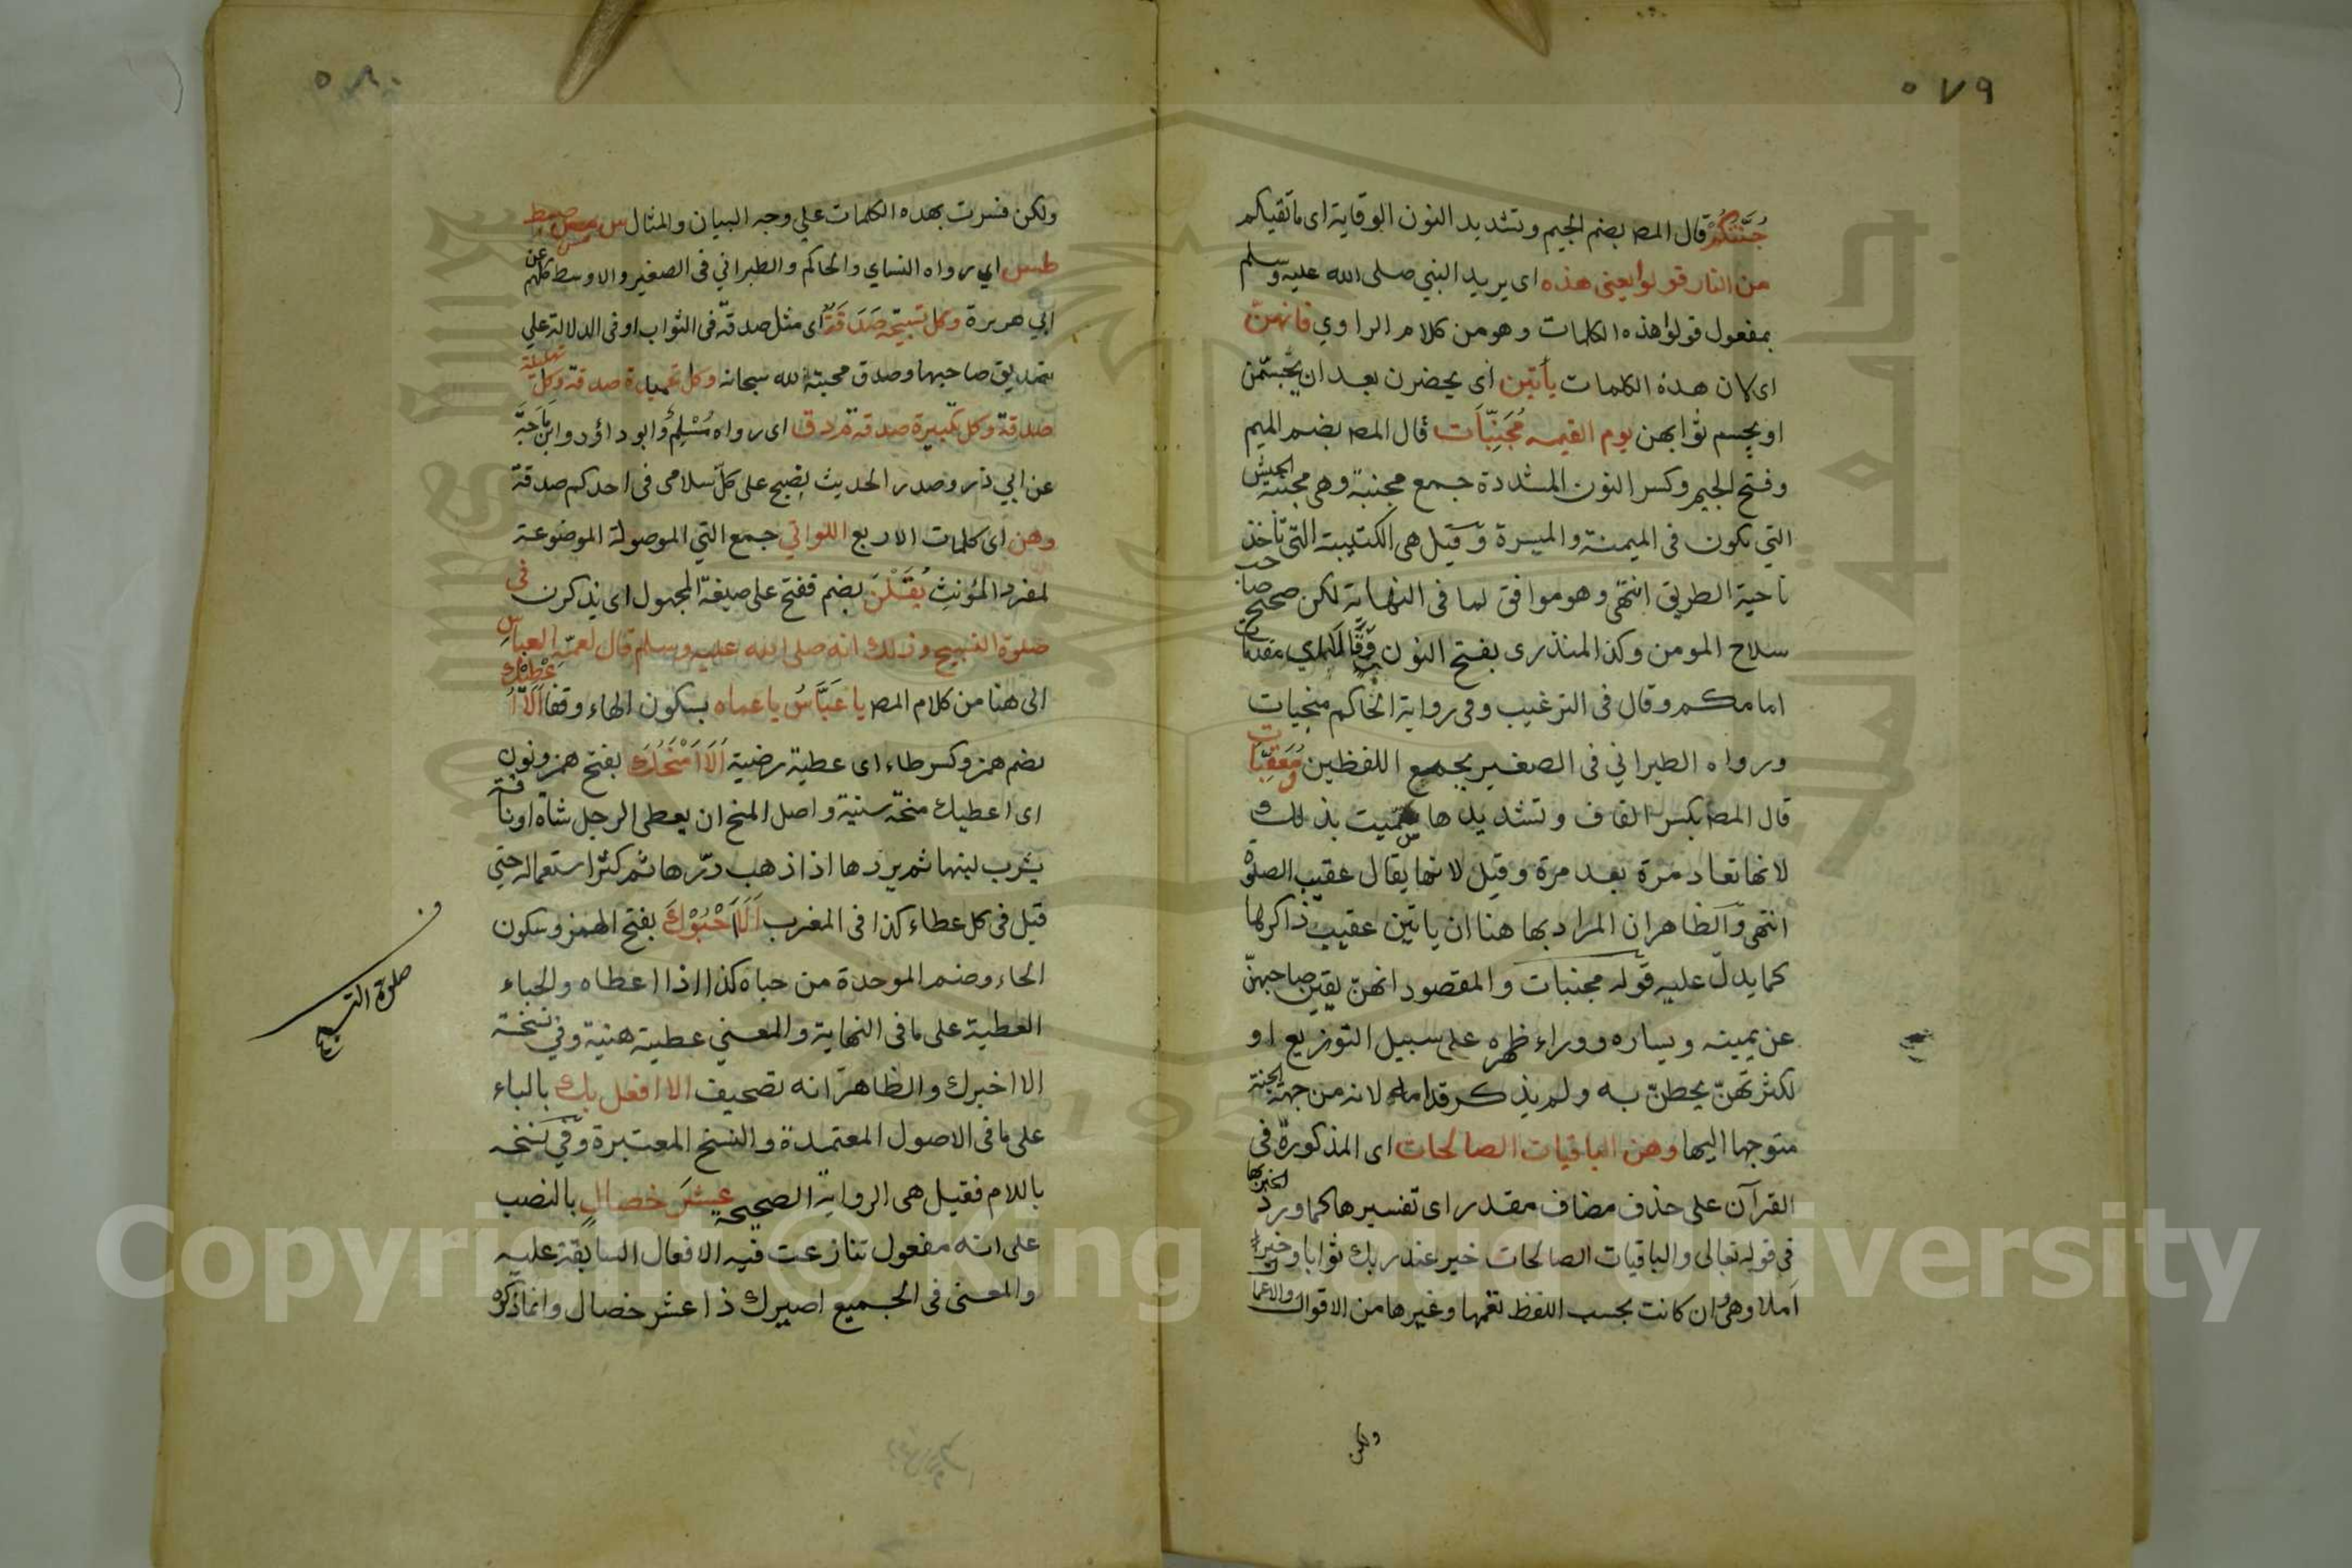 ٥٧٩
جُنَّتَكُمْ قال المصـ بضم الجيم وتشديد النون الوقاية اى ما تقيكم
من النار قولوا يعنى هذه اى يريد النبي صلى الله عليه وسلم
بمفعول قولوا هذه الكلمات وهو من كلام الراوي فانهنّ
اى لان هذه الكلمات يأتين اى يحضرن بعد ان يجسّمن
او يجسم ثوابهن يوم القيمه مُجَنِّبَات قال المصـ بضم الميم
وفتح الجيم وكسر النون المشددة جمع مجنبة وهى مجنبة الجيش
التي تكون فى الميمنة والميسرة وقيل هى الكتيبة التى تأخذ
ناحية الطريق انتهى وهو موافق لما فى النهاية لكن صحح صاحب
سلاح المومن وكذا المنذرى بفتح النون اى مقدمات
امامكم وقال فى الترغيب وفى رواية الحاكم منجيات
ورواه الطبراني فى الصغير بجمع اللفظين وَمُعَقِّبَات
قال المصـ بكسر القاف وتشديدها سميت بذلك
لانها تعاد مرة بعد مرة وقيل لانها يقال عقيب الصلوة
انتهى والظاهر ان المراد بها هنا ان ياتين عقيب ذاكرها
كما يدل عليه قوله مجنبات والمقصود انهنّ يقين صاحبهنّ
عن يمينه ويساره ووراء ظهره على سبيل التوزيع او
لكثرتهنّ يحطنّ به ولم يذكر قدامه لانه من جهة الجنة
متوجها اليها وهن الباقيات الصالحات اى المذكورة فى
القرآن على حذف مضاف مقدر اى تفسيرها كما ورد
فى قوله تعالى والباقيات الصالحات خير عند ربك ثوابا وخير
املا وهى وان كانت بحسب اللفظ تعمها وغيرها من الاقوال والاعما
ولكن
٥٨٠
ولكن فسرت بهذه الكلمات علي وجه البيان والمثال س مس صط
طس اي رواه النساي والحاكم والطبراني فى الصغير والاوسط كلهم عن
ابي هريرة وكل تسبيحه صَدَقَةٌ اى مثل صدقة فى الثواب او فى الدلالة علي
تصديق صاحبها وصدق محبته لله سبحانه وكل تحميدة صدقة وكل تهليلة
صدقة وكل تكبيرة صدقة م د ق اى رواه مُسْلِم وابو داؤد وابن ماجة
عن ابي ذر وصدر الحديث يصبح على كل سلامى فى احدكم صدقة
وهن اى كلمات الاربع اللواتي جمع التي الموصولة الموضوعة
لمفرد المؤنث يُقَلْنَ بضم ففتح على صيغة المجهول اى يذكرن فى
صلوة التسبيح وذلك انه صلى الله عليه وسلم قال لعمّه العباس
الى هنا من كلام المصـ يا عَبَّاسُ يا عماه بسكون الهاء وقفا اَلَا اُعْطِيْكَ
بضم همز وكسر طاء اى عطية رضية اَلَا اَمْنَحُكَ بفتح همز ونون
اى اعطيك منحة سنية واصل المنح ان يعطى الرجل شاة او ناقة
يشرب لبنها ثم يردها اذا ذهب درّها ثم كثر استعماله حتى
قيل فى كل عطاء كذا فى المغرب اَلَا اَحْبُوْكَ بفتح الهمز وسكون
الحاء وضم الموحدة من حباه كذا اذا اعطاه والحباء
العطية على ما فى النهاية والمعنى عطية هنية وفي نسخة
الا اخبرك والظاهر انه تصحيف الا افعل بك بالباء
على ما فى الاصول المعتمدة والنسخ المعتبرة وفي نسخه
باللام فقيل هى الرواية الصحيحة عشرَ خصالٍ بالنصب
على انه مفعول تنازعت فيه الافعال السابقة عليه
والمعنى فى الجميع اصيرك ذا عشر خصال وانما ذكره
صلوة التسبيح
Copyright © King Saud University
جامعة الملك سعود